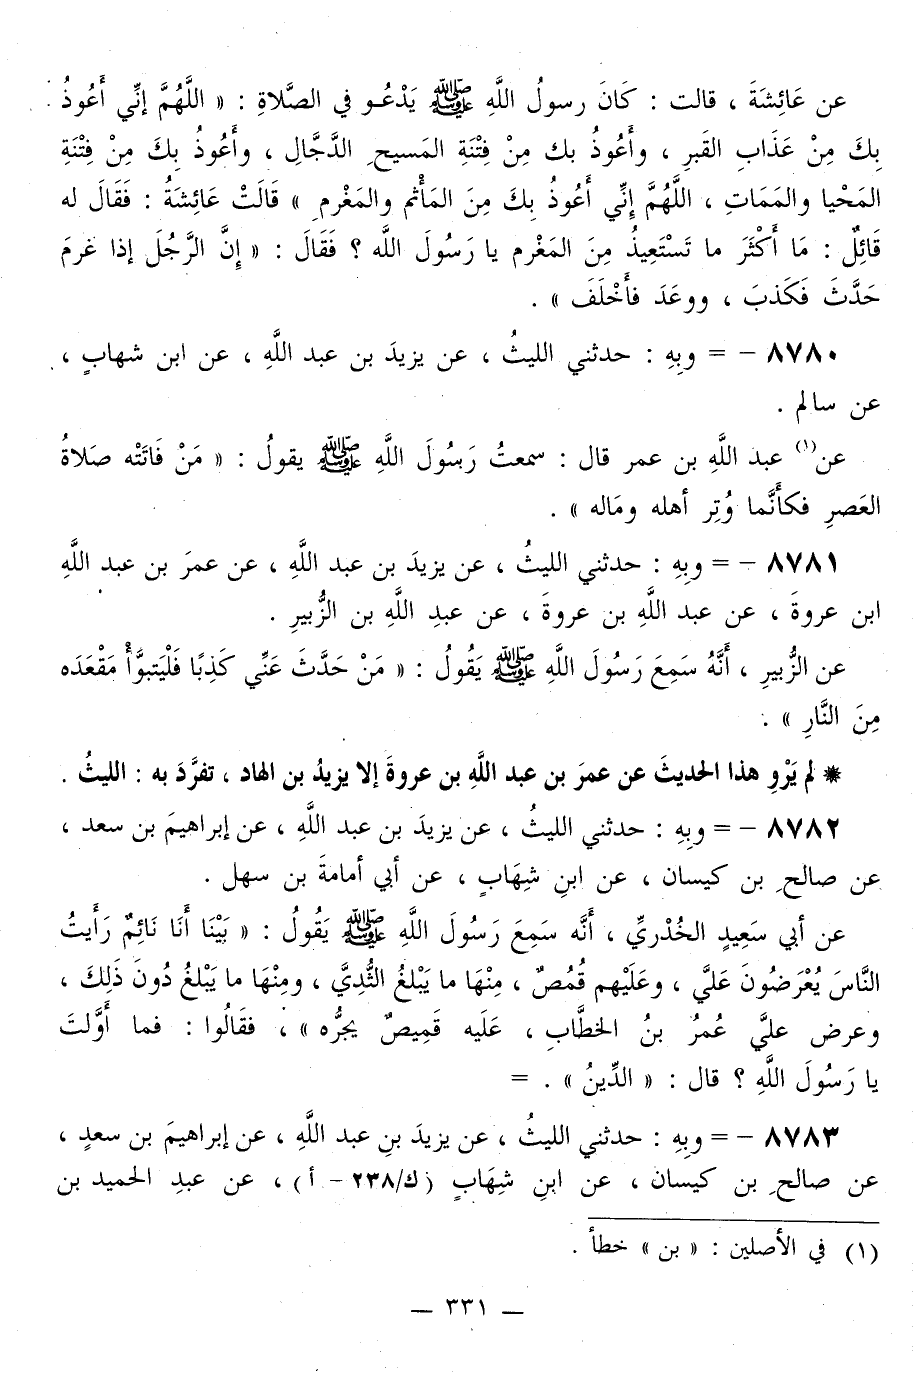 عن عَائِشَةَ ، قالت : كَانَ رسولُ اللَّهِ ﷺ يَدْعُـو في الصَّلاةِ : « اللَّهُمَّ إنِّي أَعُوذُ
بِكَ مِنْ عَذَابِ القَبرِ ، وأَعُوذُ بك مِنْ فِتْنَةِ المَسيحِ الدَّجَّالِ ، وأَعُوذُ بِكَ مِنْ فِتْنَةِ
المَحْيا والمَمَاتِ ، اللَّهُمَّ إنِّي أَعُوذُ بِكَ مِنَ المَأْثم والمَغْرمِ » قَالَتْ عَائِشَةُ : فَقَالَ له
قَائِلٌ : مَا أَكْثَرَ ما تَسْتَعِيذُ مِنَ المَغْرم يا رَسُولَ اللَّه ؟ فَقَالَ : « إِنَّ الرَّجُلَ إذا غرمَ
حَدَّثَ فَكَذبَ ، ووعَدَ فأَخْلَفَ » .
٨٧٨٠ – = وبِهِ : حدثني الليثُ ، عن يزيدَ بن عبد اللَّهِ ، عن ابن شهابٍ ،
عن سالم .
عن(١) عبد اللَّهِ بن عمر قال : سمعتُ رَسُولَ اللَّهِ ﷺ يقولُ : « مَنْ فَاتَتْه صَلاةُ
العَصرِ فكأَنَّما وُتِر أهله ومَاله » .
٨٧٨١ – = وبِهِ : حدثني الليثُ ، عن يزيدَ بن عبد اللَّهِ ، عن عمرَ بن عبد اللَّهِ
ابن عروةَ ، عن عبد اللَّهِ بن عروةَ ، عن عبدِ اللَّهِ بن الزُّبيرِ .
عن الزُّبيرِ ، أَنَّهُ سَمِعَ رَسُولَ اللَّهِ ﷺ يَقُولُ : « مَنْ حَدَّثَ عَنِّي كَذِبًا فَلْيَتبوَّأْ مَقْعَدَه
مِنَ النَّارِ » .
* لم يَرْوِ هذا الحديثَ عن عمرَ بن عبد اللَّهِ بن عروةَ إلا يزيدُ بن الهاد ، تفرَّدَ به : الليثُ .
٨٧٨٢ – = وبِهِ : حدثني الليثُ ، عن يزيدَ بن عبد اللَّهِ ، عن إبراهيمَ بن سعد ،
عن صالحِ بن كيسان ، عن ابنِ شِهَابٍ ، عن أبي أمامةَ بن سهل .
عن أبي سَعِيدٍ الخُدْريِّ ، أَنَّه سَمِعَ رَسُولَ اللَّهِ ﷺ يَقُولُ : « بَيْنَا أَنَا نَائِمٌ رَأَيتُ
النَّاسَ يُعْرَضُونَ عَليَّ ، وعَلَيْهم قُمُصٌ ، مِنْهَا ما يَبْلغُ الثُّدِيَّ ، ومِنْهَا ما يَبْلغُ دُونَ ذَلِكَ ،
وعرض عليَّ عُمرُ بنُ الخطَّابِ ، عَلَيه قَمِيصٌ يجرُّه » ، فقَالُوا : فما أَوَّلتَ
يا رَسُولَ اللَّهِ ؟ قال : « الدِّينُ » . =
٨٧٨٣ – = وبِهِ : حدثني الليثُ ، عن يزيدَ بنِ عبد اللَّهِ ، عن إبراهيمَ بن سعدٍ ،
عن صالحِ بن كيسان ، عن ابنِ شِهَابٍ (ك/٢٣٨ – أ) ، عن عبدِ الحميد بن
(١) في الأصلين : « بن » خطأ .
— ٣٣١ —